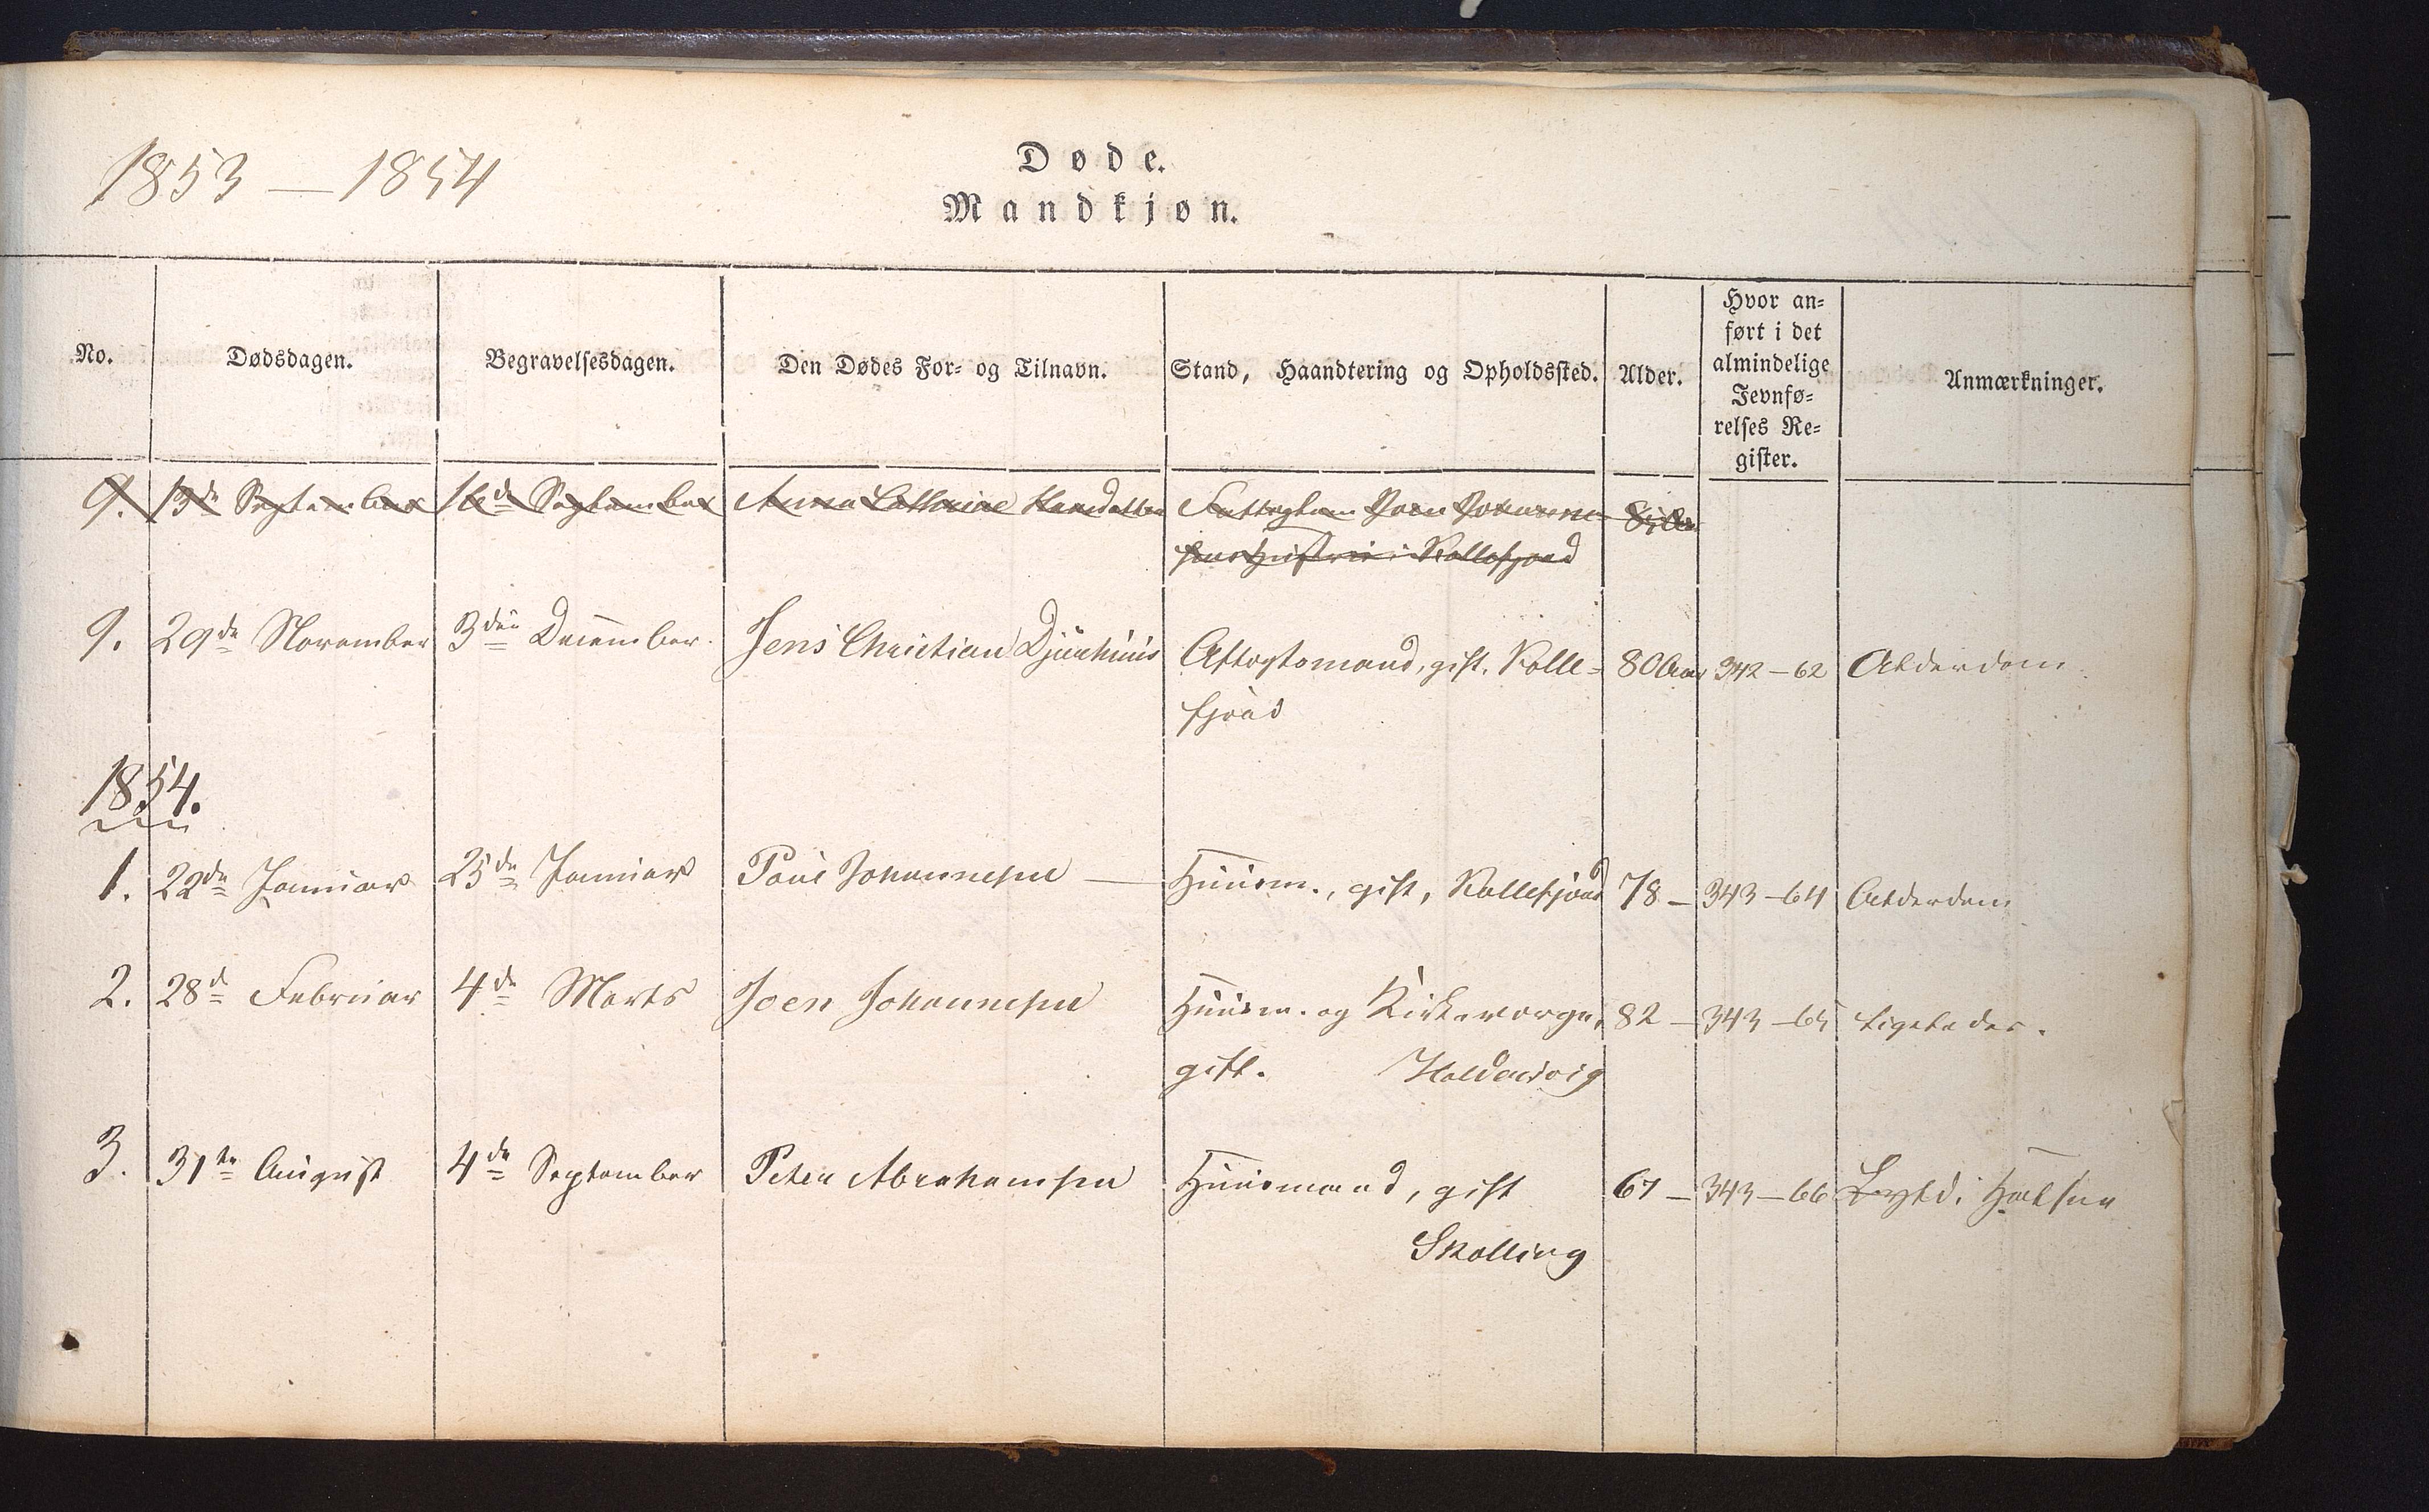 1853 — 1854
Døde.
Mandkjøn.
No. Dødsdagen. Begravelsesdagen. Den Dødes For- og Tilnavn. Stand, Haandtering og Opholdssted. Alder. Hvor an-
ført i det
almindelige
Jevnfø-
relses Re-
gister. Anmærkninger.
9. 13de September 16de September Anna Cathrine Hansdatter
i Kollefjord
9. 29de November 3die December. Jens Christian Djurhuus Aftægtsmand, gift. Kolle- 80 Aar 342–62 Alderdom
fjord
1854.
1. 22de Januar 25de Januar Poul Johannesen — Huusm., gift, Kollefjord 78 – 343–64 Alderdom
2. 28de Februar 4de Marts Joen Johannesen Huusm. og Kirkeværge, 82 – 343–65 Ligeledes.
gift. Haldarsvig
3. 31te August 4de September Peter Abrahamsen Huusmand, gift 67 – 343–66 i Halsen
Skælling